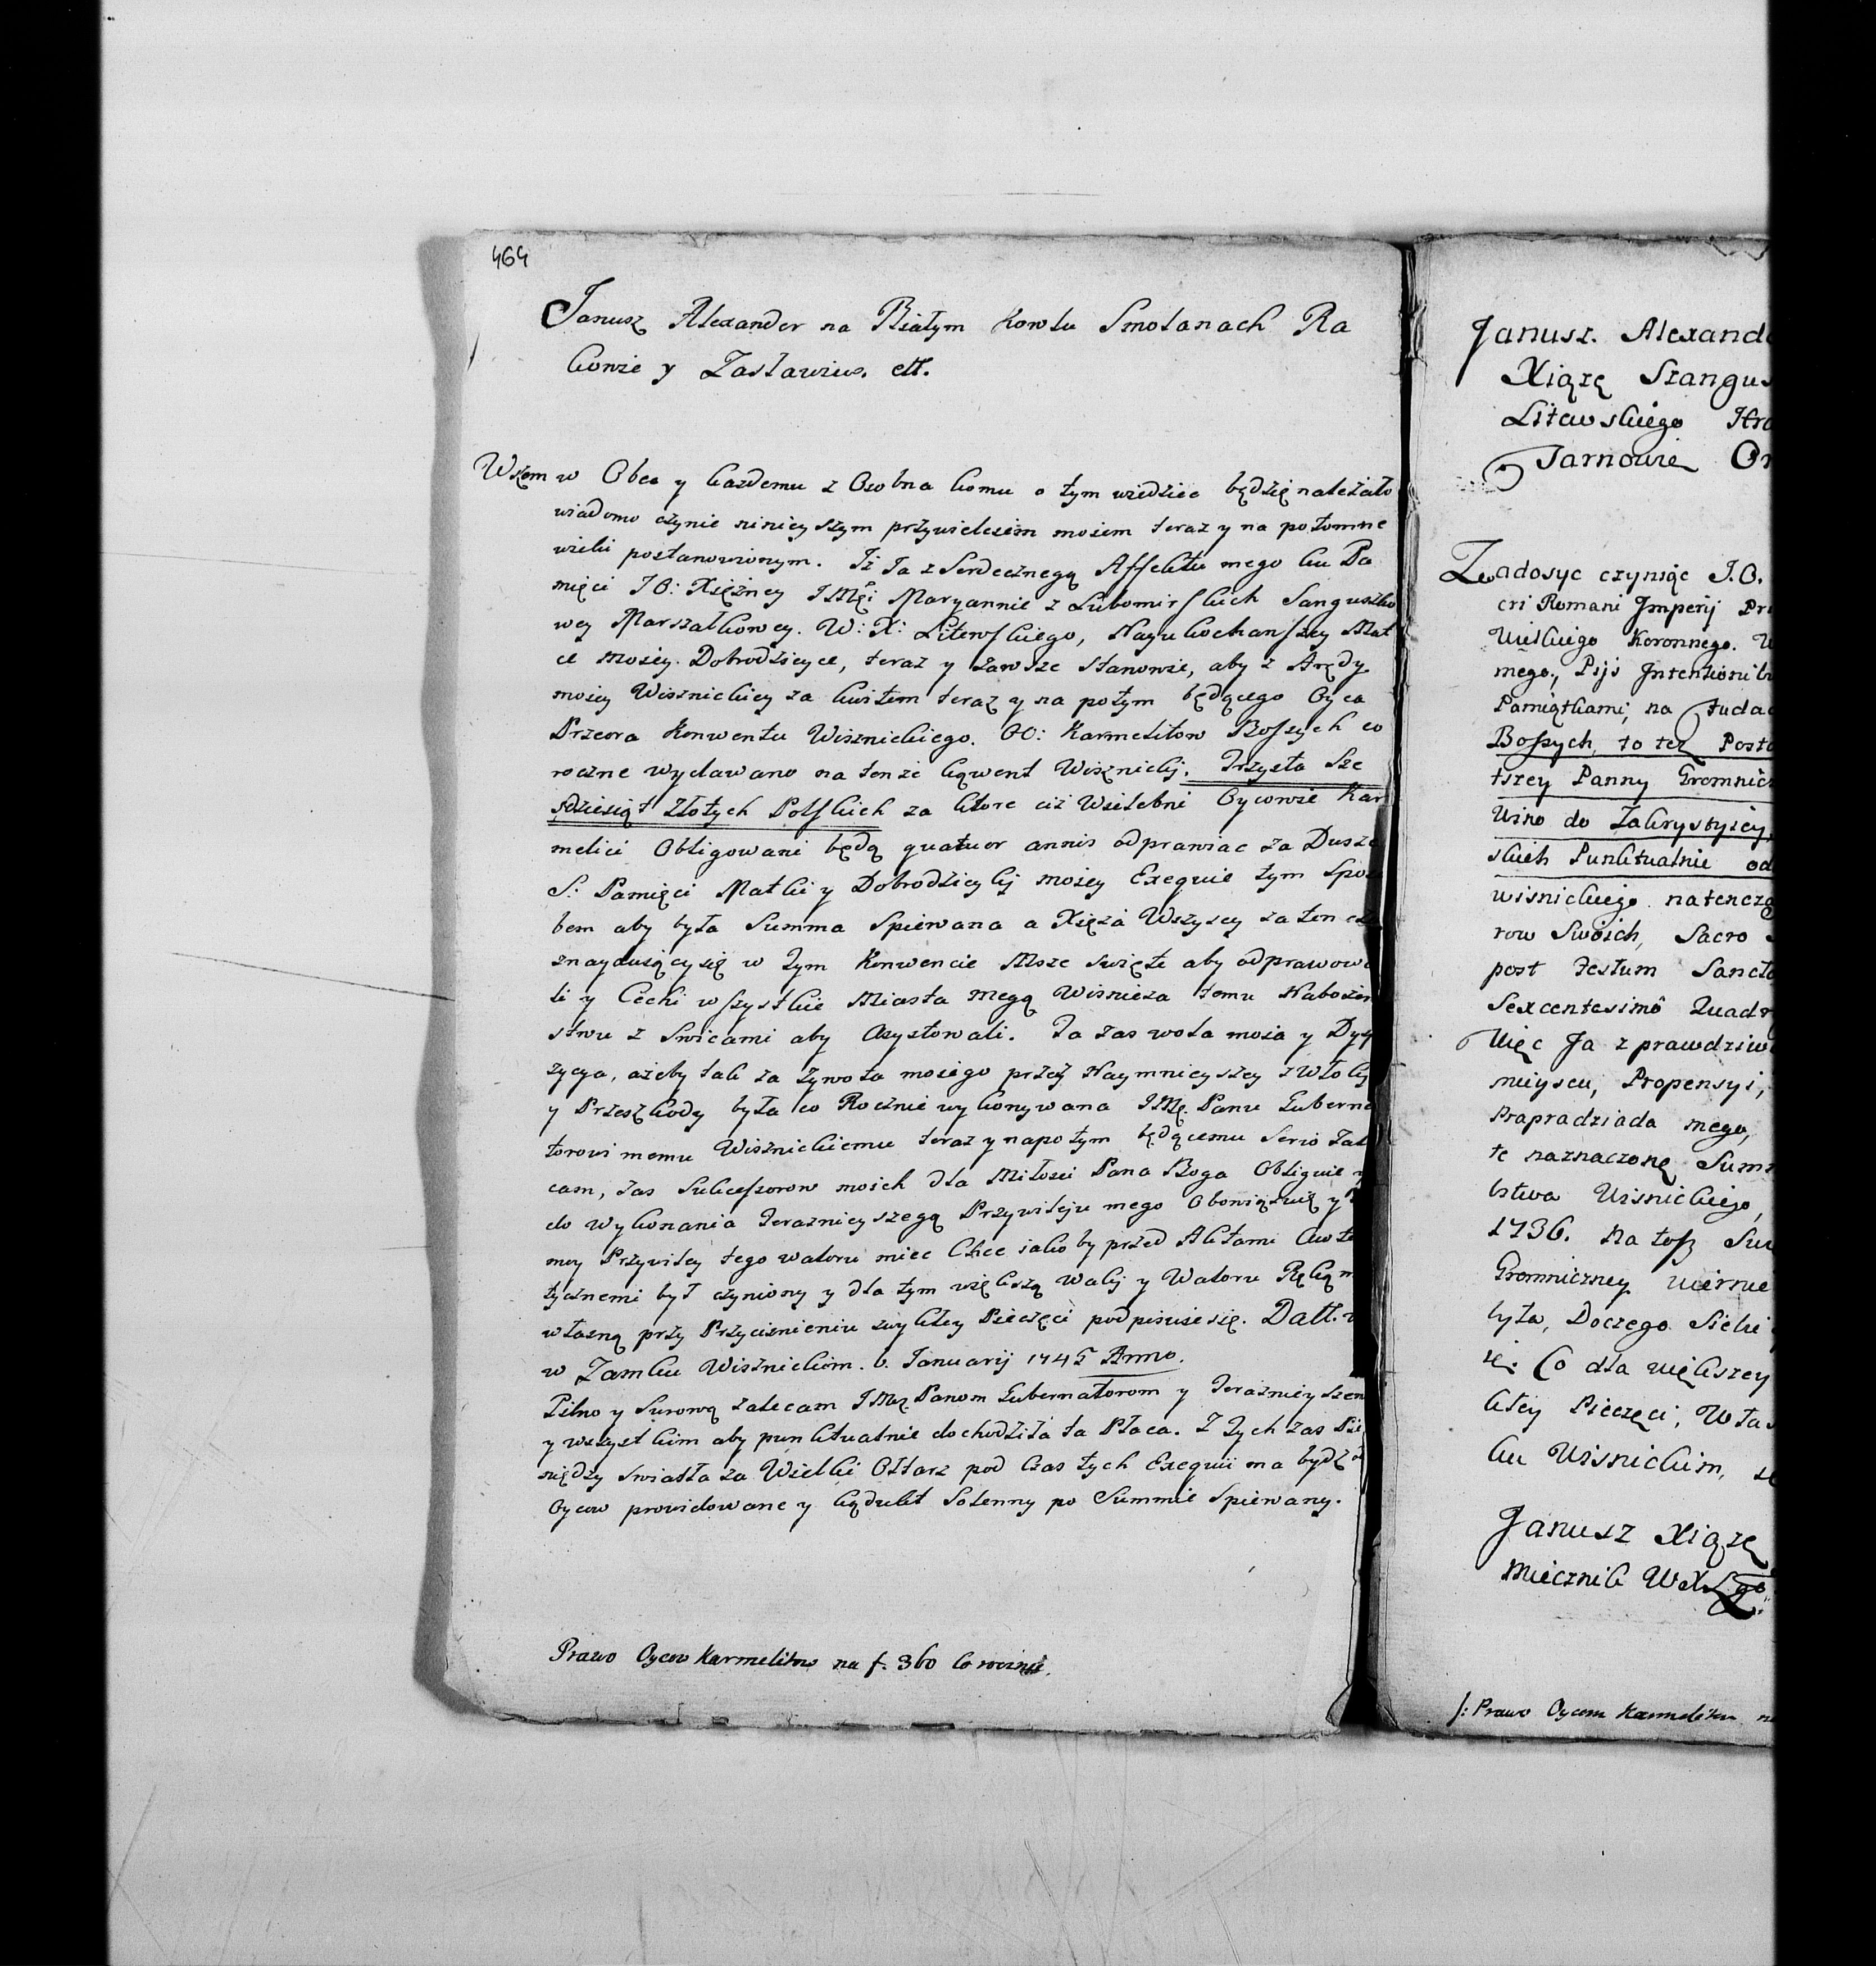 464
Janusz Alexander na Białym Kowlu Smolanach Ra
kowie y Zasławiu. ett.
Wszem w Obec y kazdemu z Osobna komu o tym wiedziec będzie należało
wiadomo czynie ninieyszym przywileiem moiem teraz y na potomne
wieki postanowionym. Iż Ja z Serdecznegą Affektu mego ku Pa
mięci J O: Xiężney JMęi Maryannie z Lubomirskich Sanguszko
wey Marszałkowey. W: X: Litewskiego, Nayukochanszey Mat
ce moiey Dobrodzieyce, teraz y zawsze stanowie, aby z Arędy
moiey Wisznickiey za kwitem teraz y na potym będącego Oyca
Przeora Konwentu Wisznickiego. OO: Karmelitow Bossych co
roczne wydawano na tenże kąwent Wisznicki. Trzysta Sze
sdziesiąt Złotych Polskich za ktore ciż Wielebni Oycowie Kar
melici Obligowani będą quatuor annis odprawiac za Dusze
S: Pamięci Matki y Dobrodzieyki moiey Exequie tym Spos
bem aby była Summa Spiewana a Xięża Wszyscy za ten
znayduiący się w tym Konwencie Msze swięte aby odprawow
li y Cechi wszystkie Miasta megą Wisnicza temu Nabozen
stwu z Swicami aby Asystowali. Ta zas wola moia y Dys
zycya, ażeby tak za żywota moiego przez Naymnieyszey zwłoki
y Przeszkody była co Rocznie wykonywana JMę. Panu Guberna
torowi memu Wisznickiemu teraz y napotym będącemu Serio Zal
cam, zas Sukcessorow moich dla Miłosci Pana Boga Obliguie y
do wykonania Teraznieyszegą Przywileju mego Obowiązuię y
moy Przywiley tego waloru miec Chce iako by przed Aktami Awte
tycznemi był czyniony y dla tym większą walij y Waloru Ręką m
własną przy Przycisnieniu zwykłey Pieczęci podpisuie się. Datt.
w Zamku Wisznickim. 6. Januarij 1745 Anno.
Pilno y Surową zalecam JMę. Panom Gubernatorom y Teraznieyszem
y wszystkim aby punktualnie dochodziła ta Płaca. Z Tych zas Pie
niędzy swiatła za Wielki Ołtarz pod czas tych Exequii ma bydź
Oycow prowidowane y kądukt Solenny po Summie Spiewany.
Prawo Oycow Karmelitow na f. 360 Corocznie.
Janusz. Alexand
Xiążę Szangus
Litewskiego Hra
Tarnowie
Zadosyc czyniąc J.O.
cri Romani Imperij Pri
Wielkiego Koronnego.
mego, Pijs Intentionib
Pamiątkami, na
Bossych, to tez Posta
tszey Panny Gromnicz
Wino do Zakrystyiey,
skich Punktualnie od
wisnickiego natencza
row Swoich, Sacro
post Festum Sancto
Sexcentesimô Quadr
Więc Ja z prawdziw
mieyscu, Propensyi,
Prapradziada mego,
te naznaczoną Sum
bstwa Wisnickiego,
1736. na tosz Su
Gromniczney wiernie
była, Doczego Siebie
ię. Co dla większey
kłey Pieczęci, Włas
ku Wisnickim,
Janusz Xiąże
Miecznik WXLgo.
/: Prawo Oycom Karmelitom